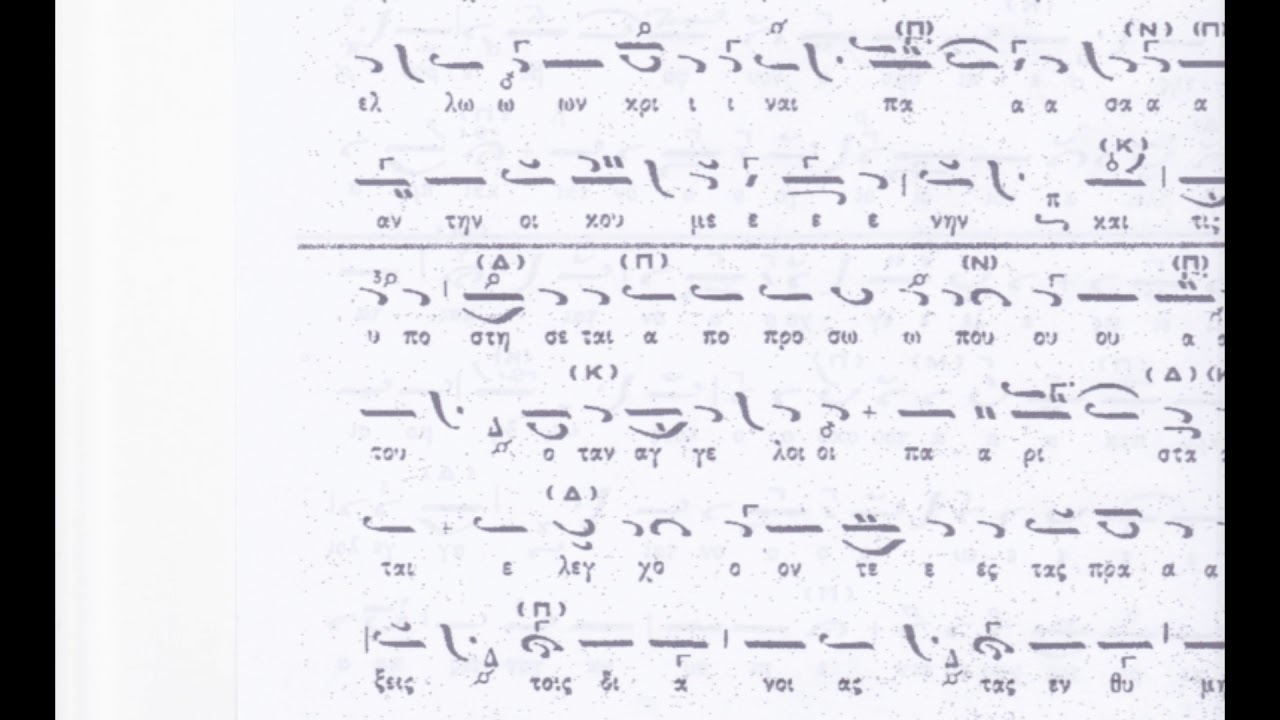 (Π) (Ν) (Π
ελ λω ω ων κρι ι ι ναι πα α α σα α α
(Κ)
αν την οι κου με ε ε ε νην π και τις
(Δ) (Π) (Ν) (Π)
υ πο στη σε ται α πο προ σω ω που ου ου α
(Κ) (Δ) (Κ
του Δ ο ταν αγ γε λοι οι πα α ρι στα
(Δ)
ται ε λεγ χο ο ον τε ε ες τας πρα α α
(Π)
ξεις Δ τοις δι α νοι ας Δ τας εν θυ μη